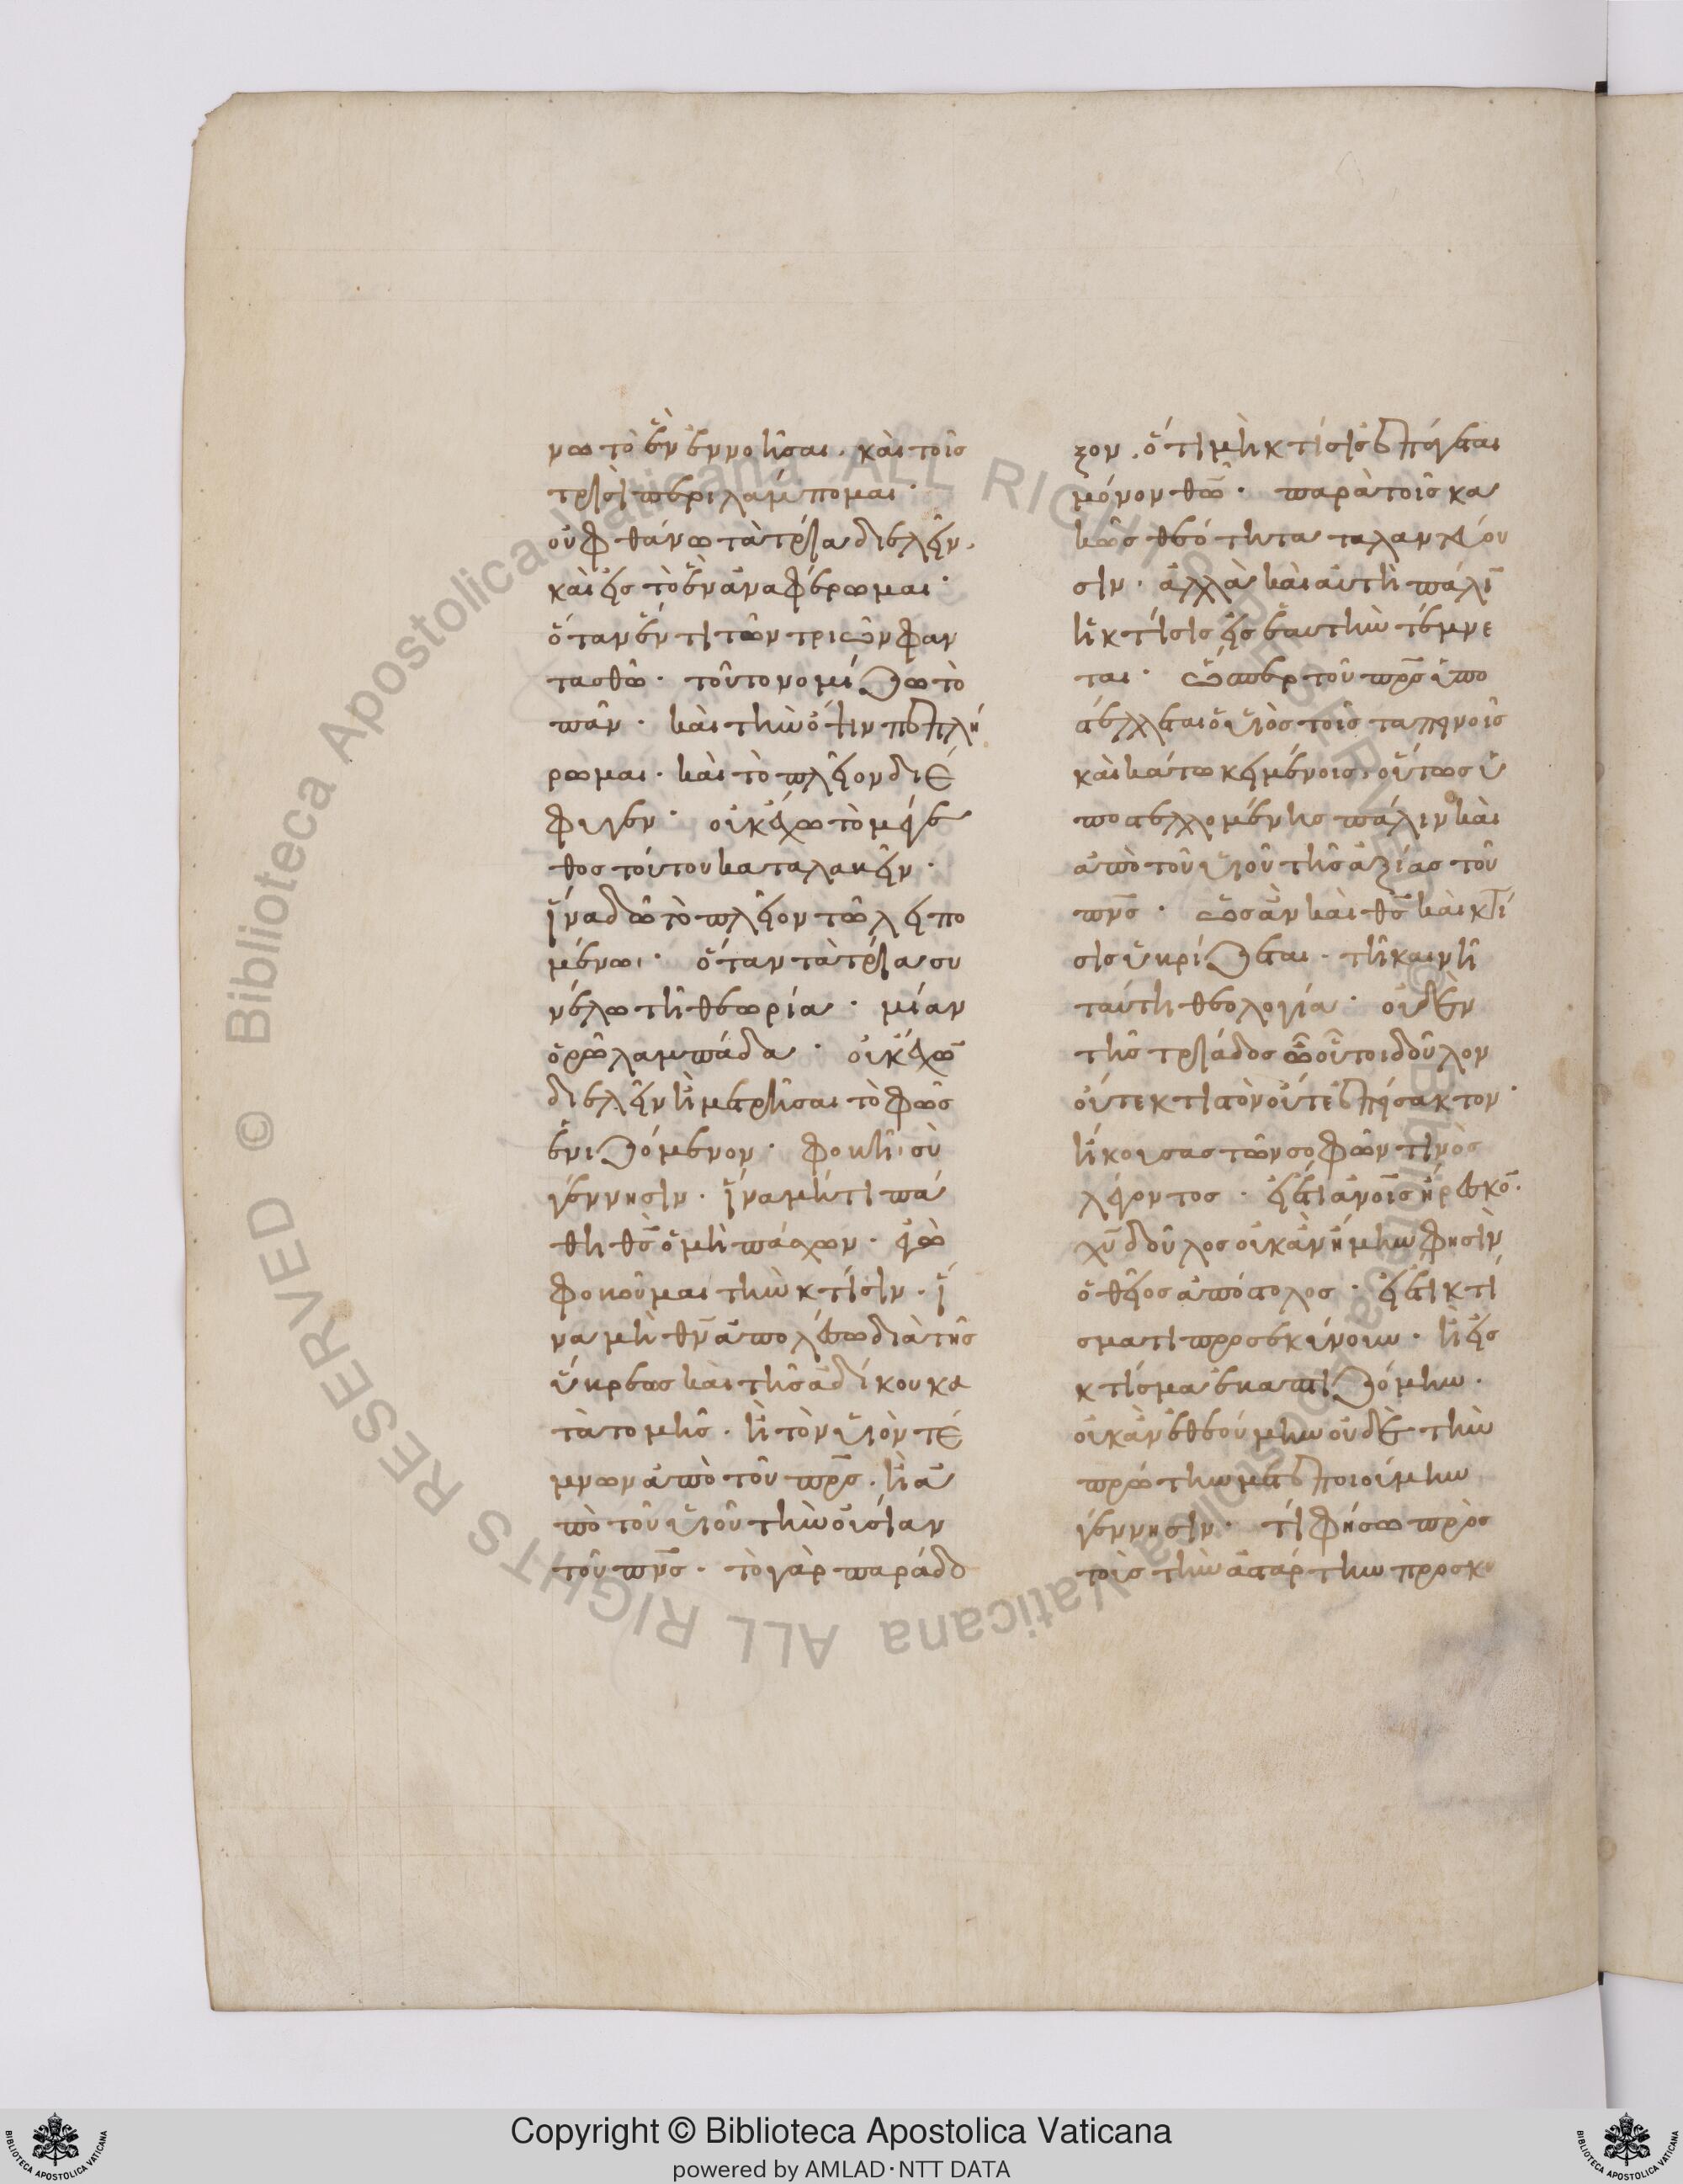 νω τὸ ἓν ἐννοῆσαι. καὶ τοῖς
τρισὶ περιλάμπομαι·
οὐ φθάνω τὰ τρία διελεῖν.
καὶ εἰς τὸ ἓν ἀναφέρωμαι·
ὅταν ἕν τι τῶν τριῶν φαν
τασθῶ. τοῦτο νομίζω τὸ
πᾶν. καὶ τὴν ὄψιν πεπλή
ρωμαι. καὶ τὸ πλεῖον διέ
φυγεν· οὐκ ἔχω τὸ μέγε
θος τούτου καταλαβεῖν.
ἵνα δῶ τὸ πλεῖον τῶ λειπο
μένωι· ὅταν τὰ τρία συ
νέλω τῆ θεωρία· μίαν
ὁρῶ λαμπάδα· οὐκ ἔχω
διελεῖν ἢ μετρῆσαι τὸ φῶς
ἑνιζόμενον· φοβῆ σὺ
γέννησιν. ἵνα μή τι πά
θη θς ὁ μὴ πάσχων. ἐγὼ
φοβοῦμαι τὴν κτίσιν. ἵ
να μὴ θν ἀπολέσω διὰ τῆς
ὕβρεως καὶ τῆς ἀδίκου κα
τατομῆς. ἢ τὸν υἱὸν τέ
μνων ἀπὸ τοῦ πρς. ἢ ἀ
πὸ τοῦ υἱοῦ τὴν οὐσίαν
τοῦ πνς. τὸ γὰρ παράδο
ξον. ὅτι μὴ κτίσις ἐπάγεται
μόνον θῶ· παρὰ τοῖς κα
κῶς θεότητα ταλαντεύου
σιν. ἀλλὰ καὶ αὐτὴ πάλιν
ἡ κτίσις εἰς ἑαυτὴν τέμνε
ται· ὥσπερ τοῦ πρς ὑπο
στέλλεται ὁ υἱὸς τοῖς ταπεινοῖς
καὶ κάτω κειμένοις. οὕτως ὑ
ποστελλομένης πάλιν καὶ
ἀπὸ τοῦ υἱοῦ τῆς ἀξίας τοῦ
πνς. ὡς ἂν καὶ θς καὶ κτί
σις ὑβρίζεται. τῆ καινῆ
ταύτη θεολογία· οὐδὲν
τῆς τριάδος ὦ οὗτοι δοῦλον
οὔτε κτιστὸν οὔτε ἐπείσακτον·
ἤκουσα τῶν σοφῶν τινὸς
λέγοντος. εἰ ἔτι ἀνοις ἤρεσκον.
χυ δοῦλος οὐκ ἂν ἤμην φησὶν
ὁ θεῖος ἀπόστολος. εἰ ἔτι κτί
σματι προσεκύνουν. ἢ εἰς
κτίσμα ἐβαπτιζόμην.
οὐκ ἂν ἐθεούμην οὐδὲ τὴν
πρώτην μετεποιούμην
γέννησιν. τί φήσω πρὸς
τοὺς τὴν ἀστάρτην προσκυ